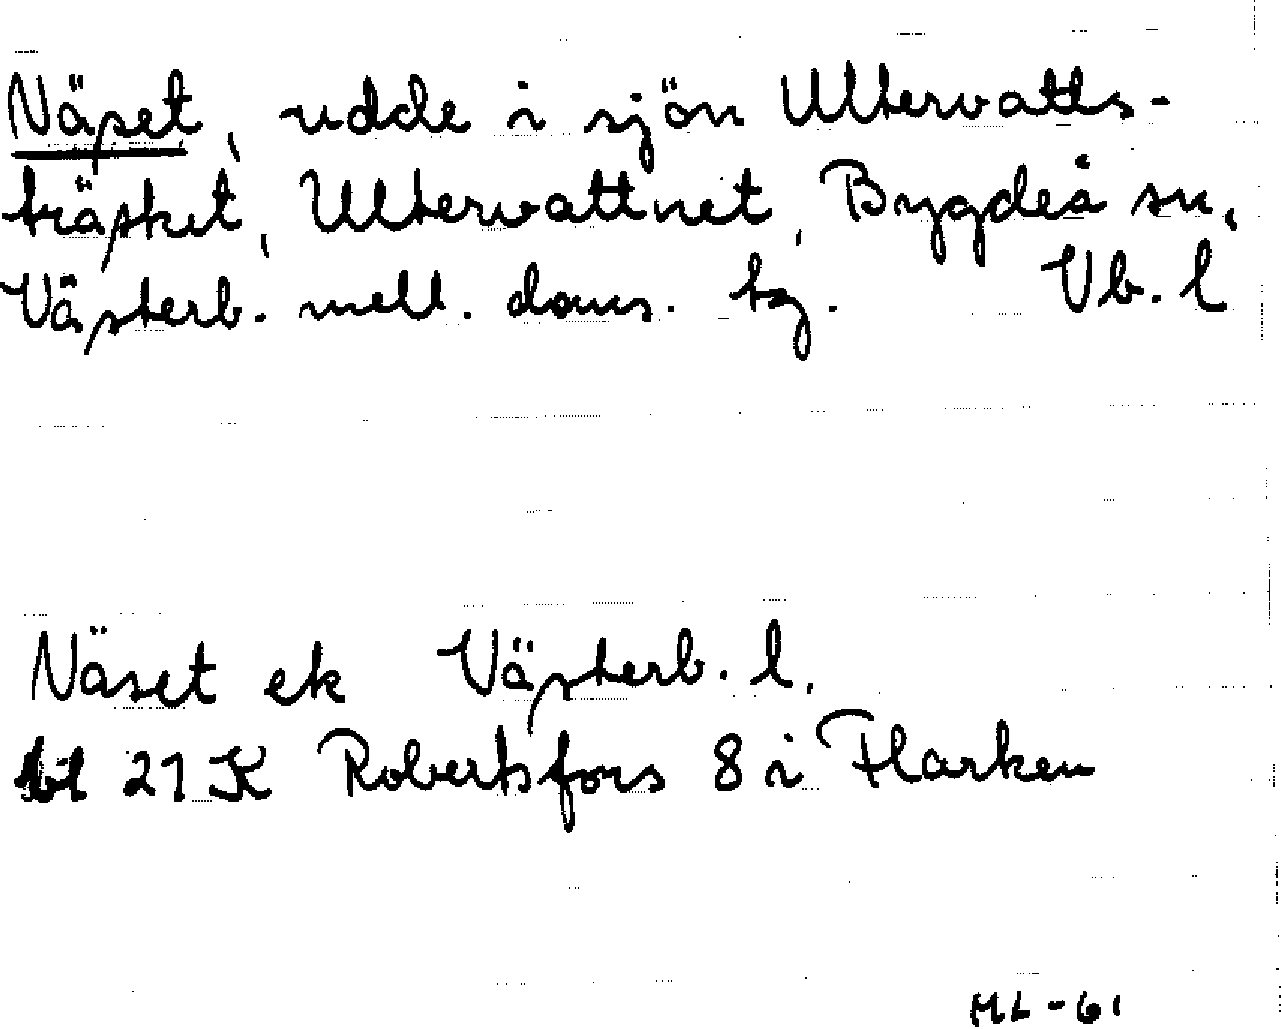 Näset, udde i sjön Ultervatts-
träsket, Ultervattnet, Bygdeå sn,
Västerb. mell. doms. tg. Vb. l
Näset ek Västerb. l.
bl 21 K Robertsfors 8 i Flarken
ML-61